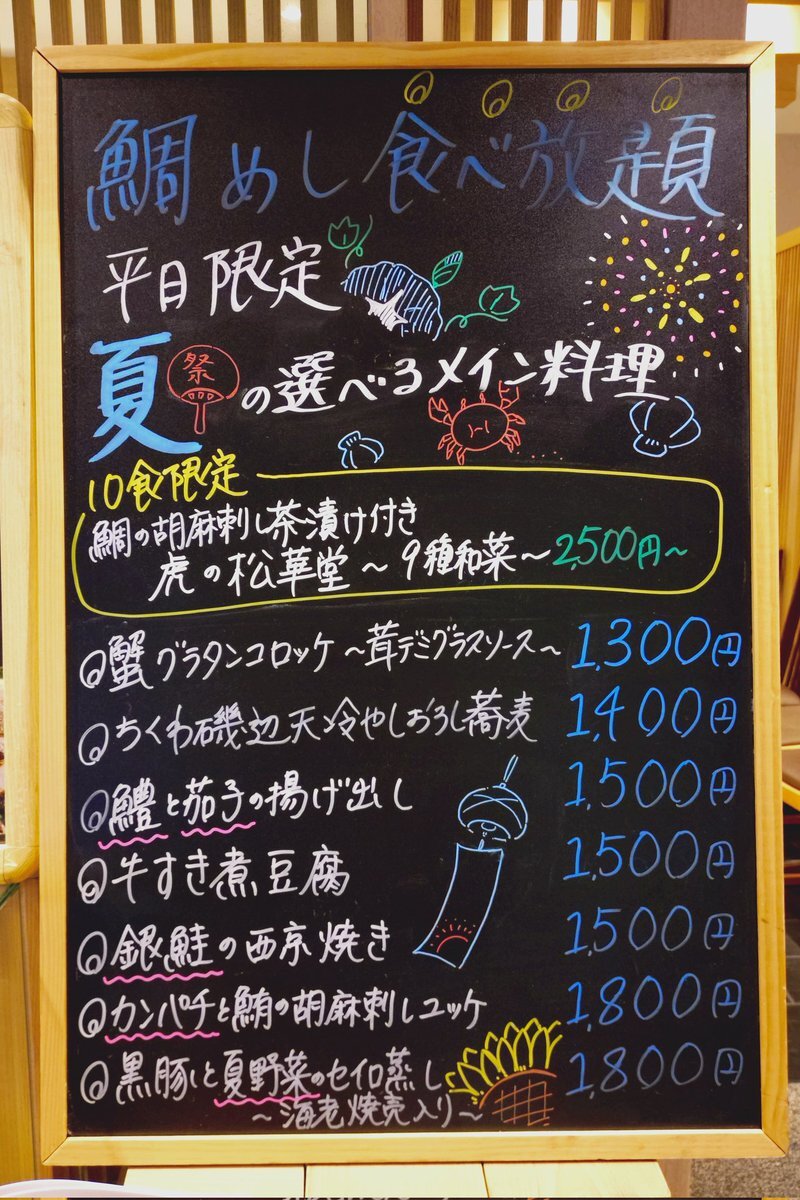 鯛めし食べ放題
平日限定
夏祭の選べるメイン料理
10食限定
鯛の胡麻刺し茶漬け付き
虎の松華堂～9種和菜～2,500円～
蟹グラタンコロッケ～茸デミグラスソース～ 1,300円
ちくわ磯辺天冷やしおろし蕎麦 1,400円
鱧と茄子の揚げ出し 1,500円
牛すき煮豆腐 1,500円
銀鮭の西京焼き 1,500円
カンパチと鮪の胡麻刺しユッケ 1,800円
黒豚と夏野菜のセイロ蒸し 1,800円
～海老焼売入り～